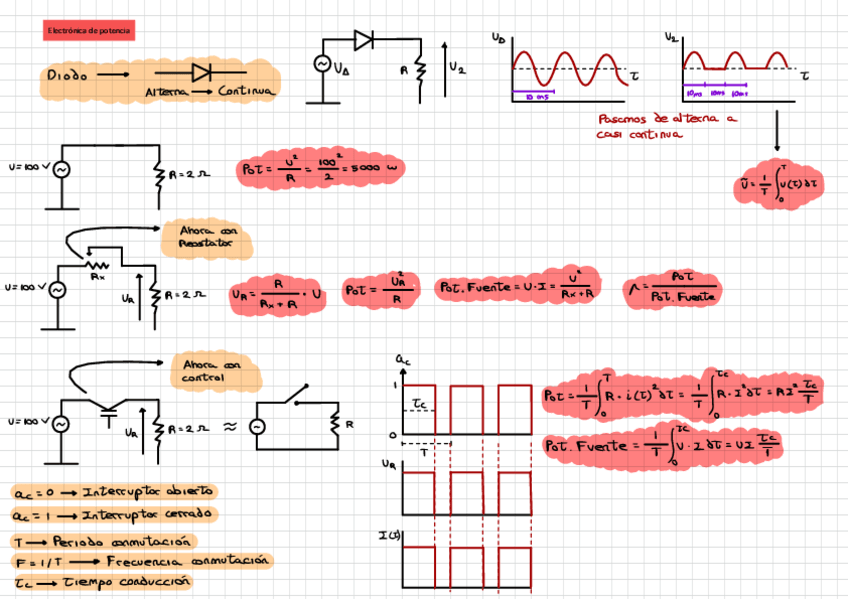 Electrónica de potencia
Diodo →
Alterna → Continua
U△
R
U2
U△
τ
10 ms
U2
τ
10ms 10ms 10ms
Pasamos de alterna a
casi continua
Ū = 1/T ∫₀ᵀ u(τ)dτ
U=100 V
R = 2 Ω
Pot = U²/R = 100²/2 = 5000 w
Ahora con
Reostator
U=100 V
Rx
UR
R = 2 Ω
UR = R/(Rx + R) · U
Pot = UR²/R
Pot. Fuente = U·I = U²/(Rx+R)
η = Pot/Pot. Fuente
Ahora con
control
U=100 V
UR
R = 2 Ω
≈
R
ac
1
τc
0
T
UR
I(τ)
Pot = 1/T ∫₀ᵀ R · i(τ)² dτ = 1/T ∫₀^τc R · I² dτ = RI² τc/T
Pot. Fuente = 1/T ∫₀^τc U · I dτ = UI τc/T
ac = 0 → Interruptor abierto
ac = 1 → Interruptor cerrado
T → Periodo conmutación
F = 1/T → Frecuencia conmutación
τc → Tiempo conducción